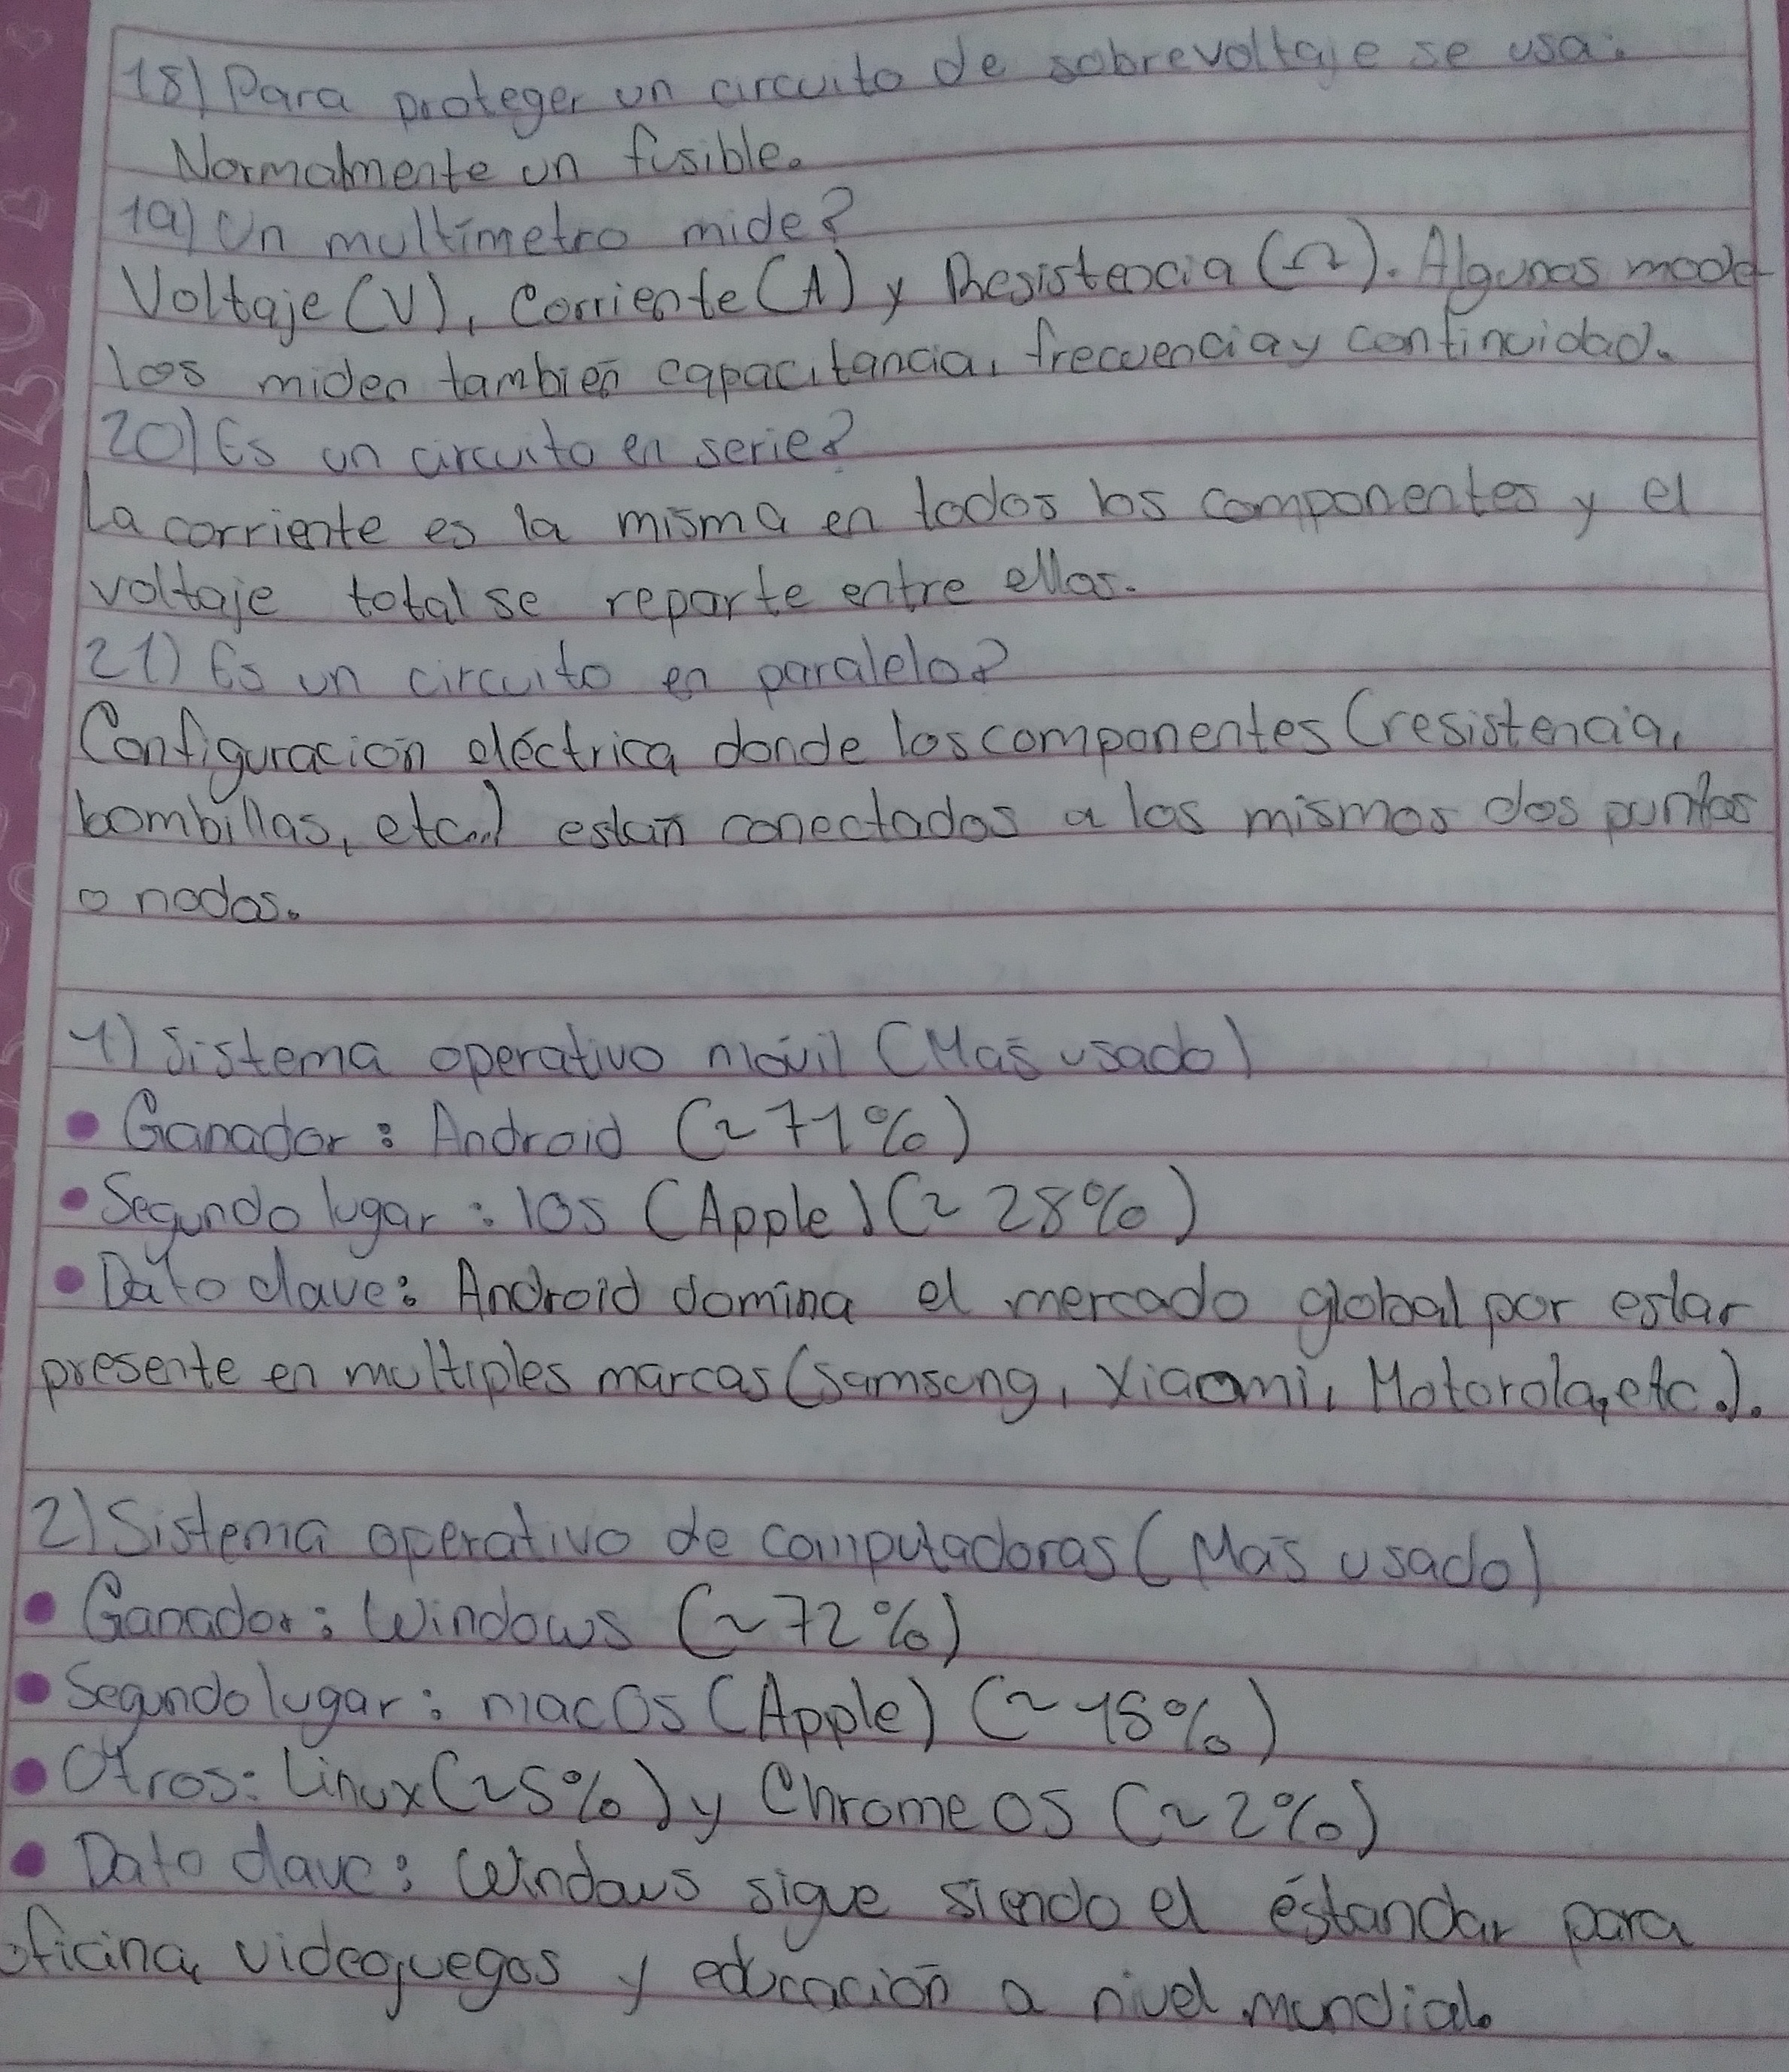 18) Para proteger un circuito de sobrevoltaje se usa:
Normalmente un fusible.
19) Un multímetro mide?
Voltaje (V), Corriente (A) y Resistencia (Ω). Algunos mode
los miden tambien capacitancia, frecuencia y continuidad.
20) Es un circuito en serie?
La corriente es la misma en todos los componentes y el
voltaje total se reparte entre ellos.
21) Es un circuito en paralelo?
Configuración eléctrica donde los componentes (resistencia,
bombillas, etc..) están conectados a los mismos dos puntos
o nodos.
1) Sistema operativo móvil (Más usado)
• Ganador: Android (~71%)
• Segundo lugar: IOS (Apple) (~28%)
• Dato clave: Android domina el mercado global por estar
presente en multiples marcas (Samsung, Xiaomi, Motorola, etc.).
2) Sistema operativo de computadoras (Más usado)
• Ganador: Windows (~72%)
• Segundo lugar: macOs (Apple) (~15%)
• Otros: Linux (~5%) y Chrome OS (~2%)
• Dato clave: Windows sigue siendo el éstandar para
oficina, videojuegos y educación a nivel mundial.